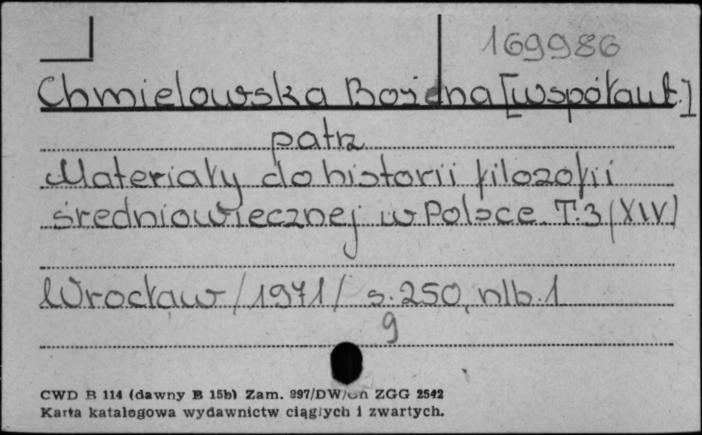 169986
Chmielowska Bożena [współaut.]
patrz
Materiały do historii filozofii
średniowiecznej w Polsce. T.3/XIV/
Wrocław /1971/ s. 250, nlb. 1
9
CWD B 114 (dawny B 15b) Zam. 997/DW/Gn ZGG 2542
Karta katalogowa wydawnictw ciągłych i zwartych.